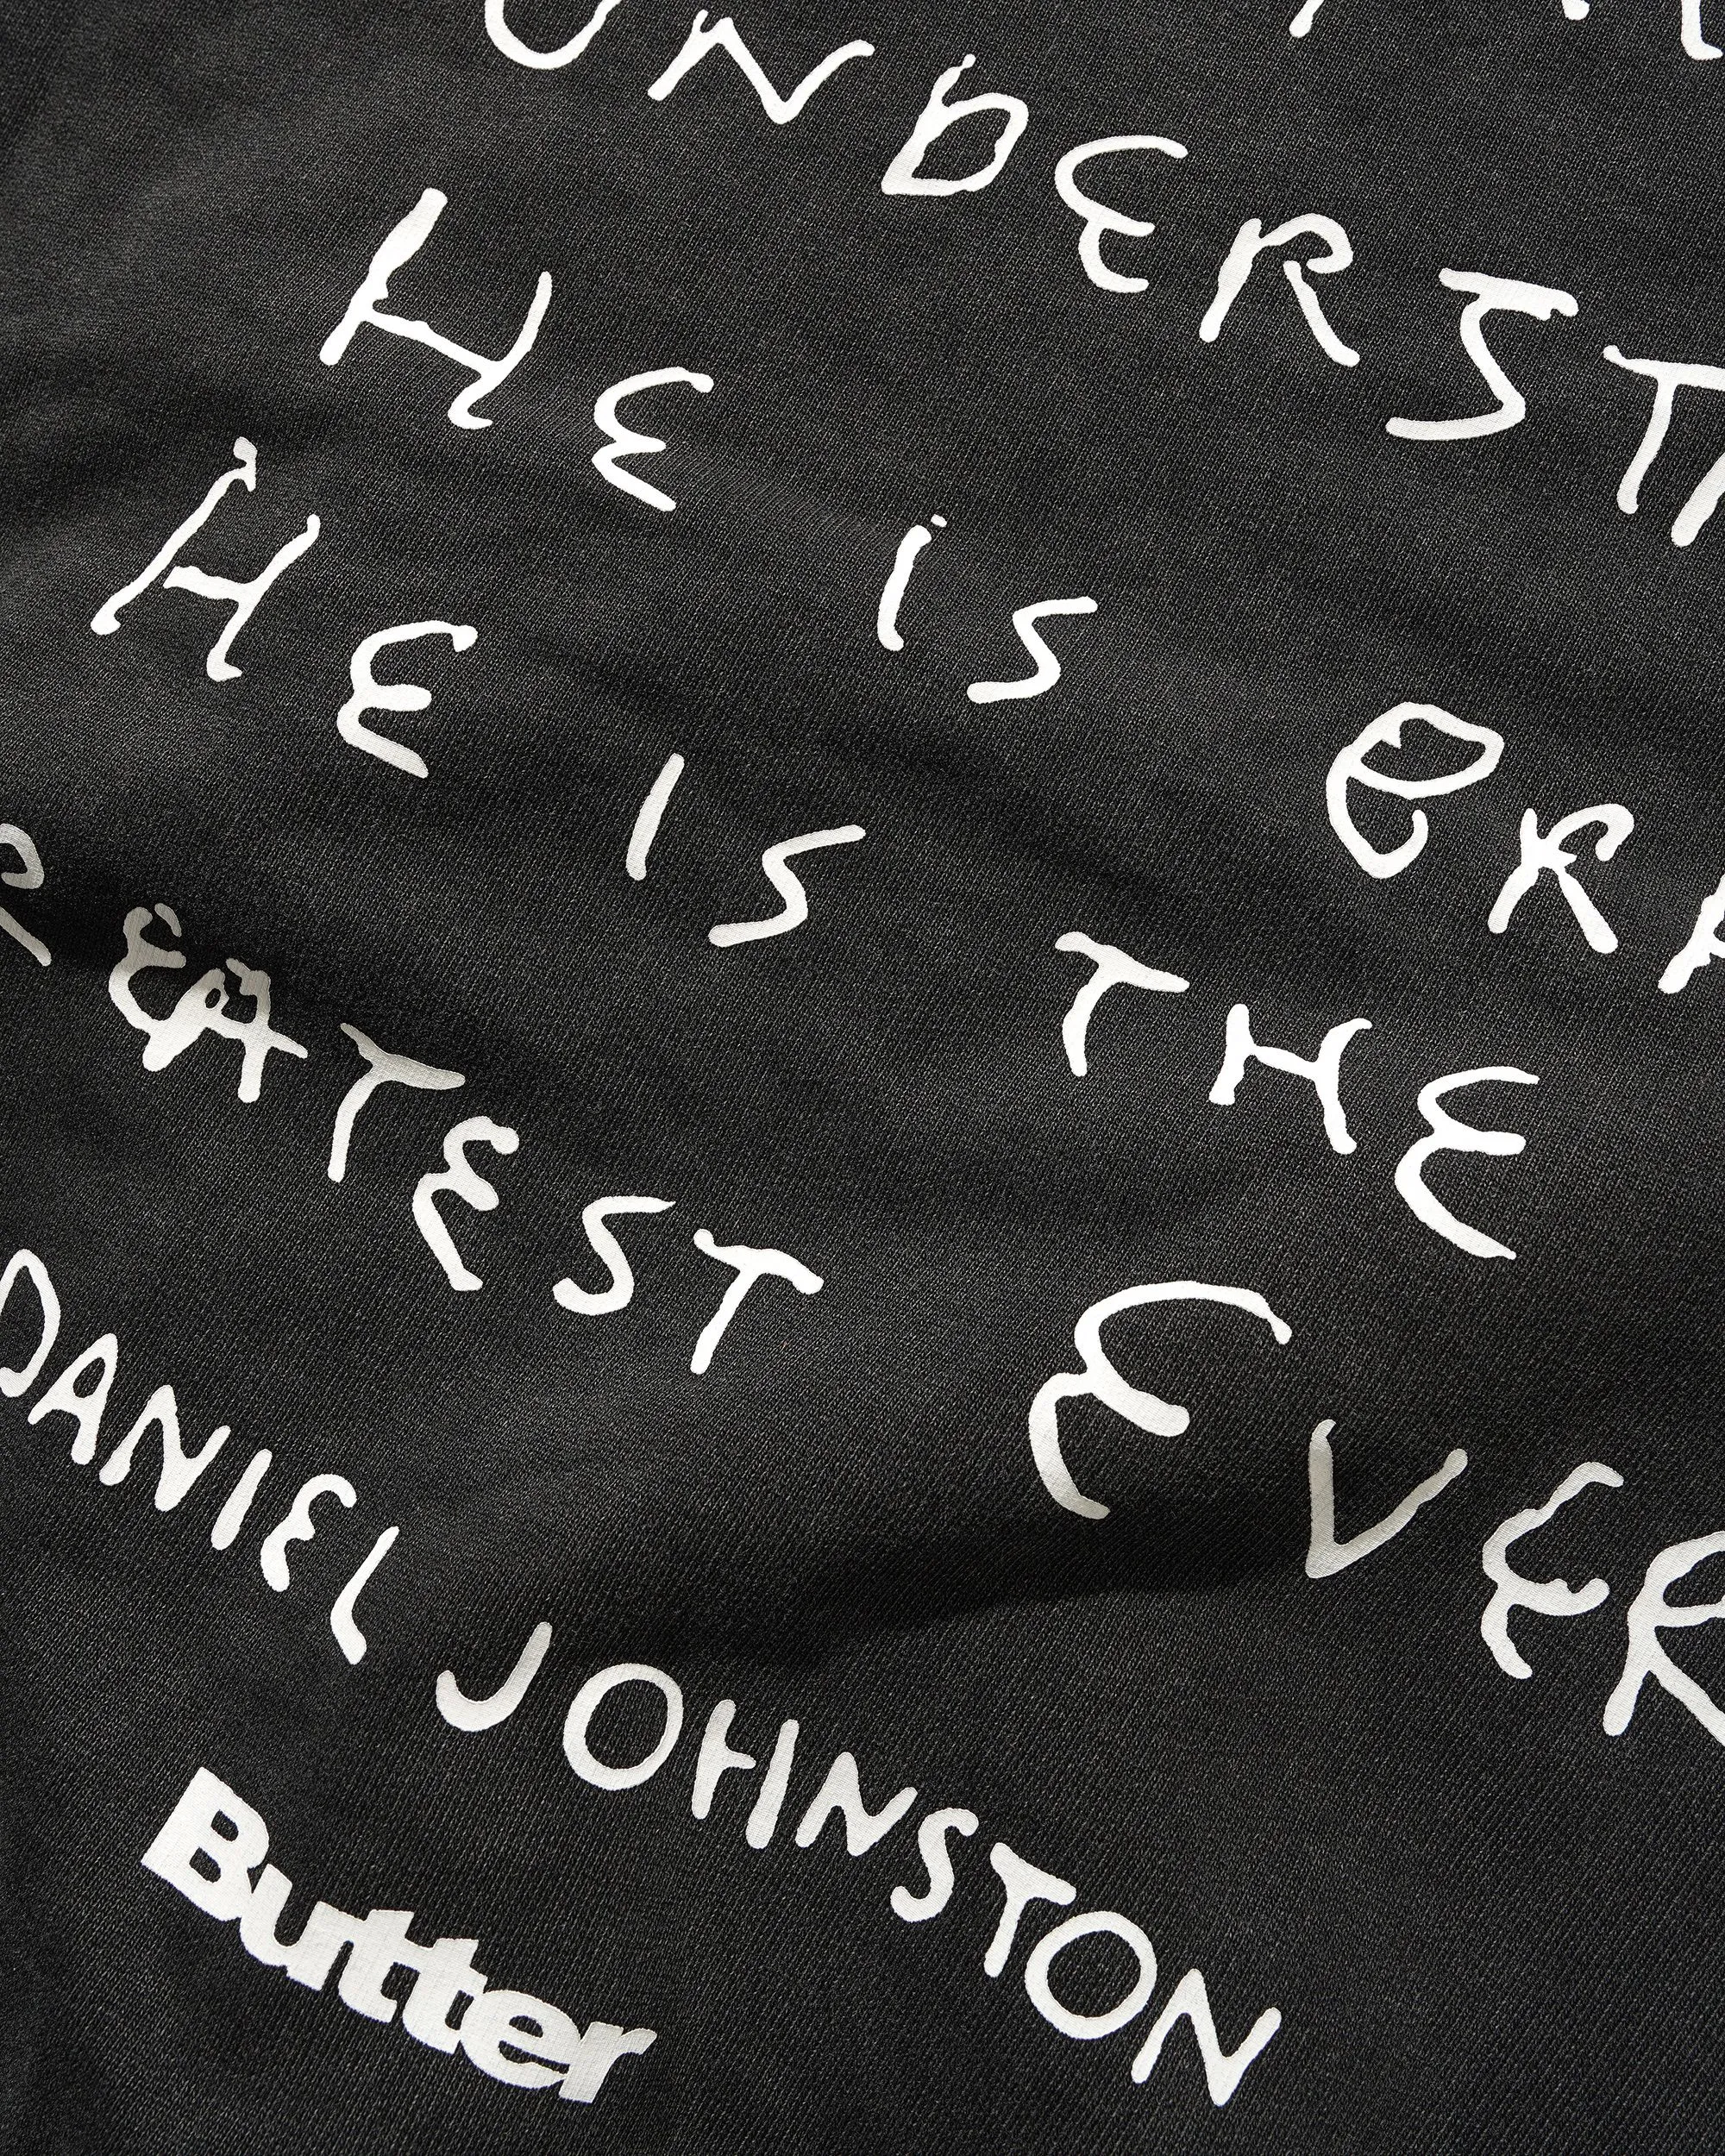 UNDERST
HE iS
HE IS THE
REATEST EVER
DANIEL JOHNSTON
Butter